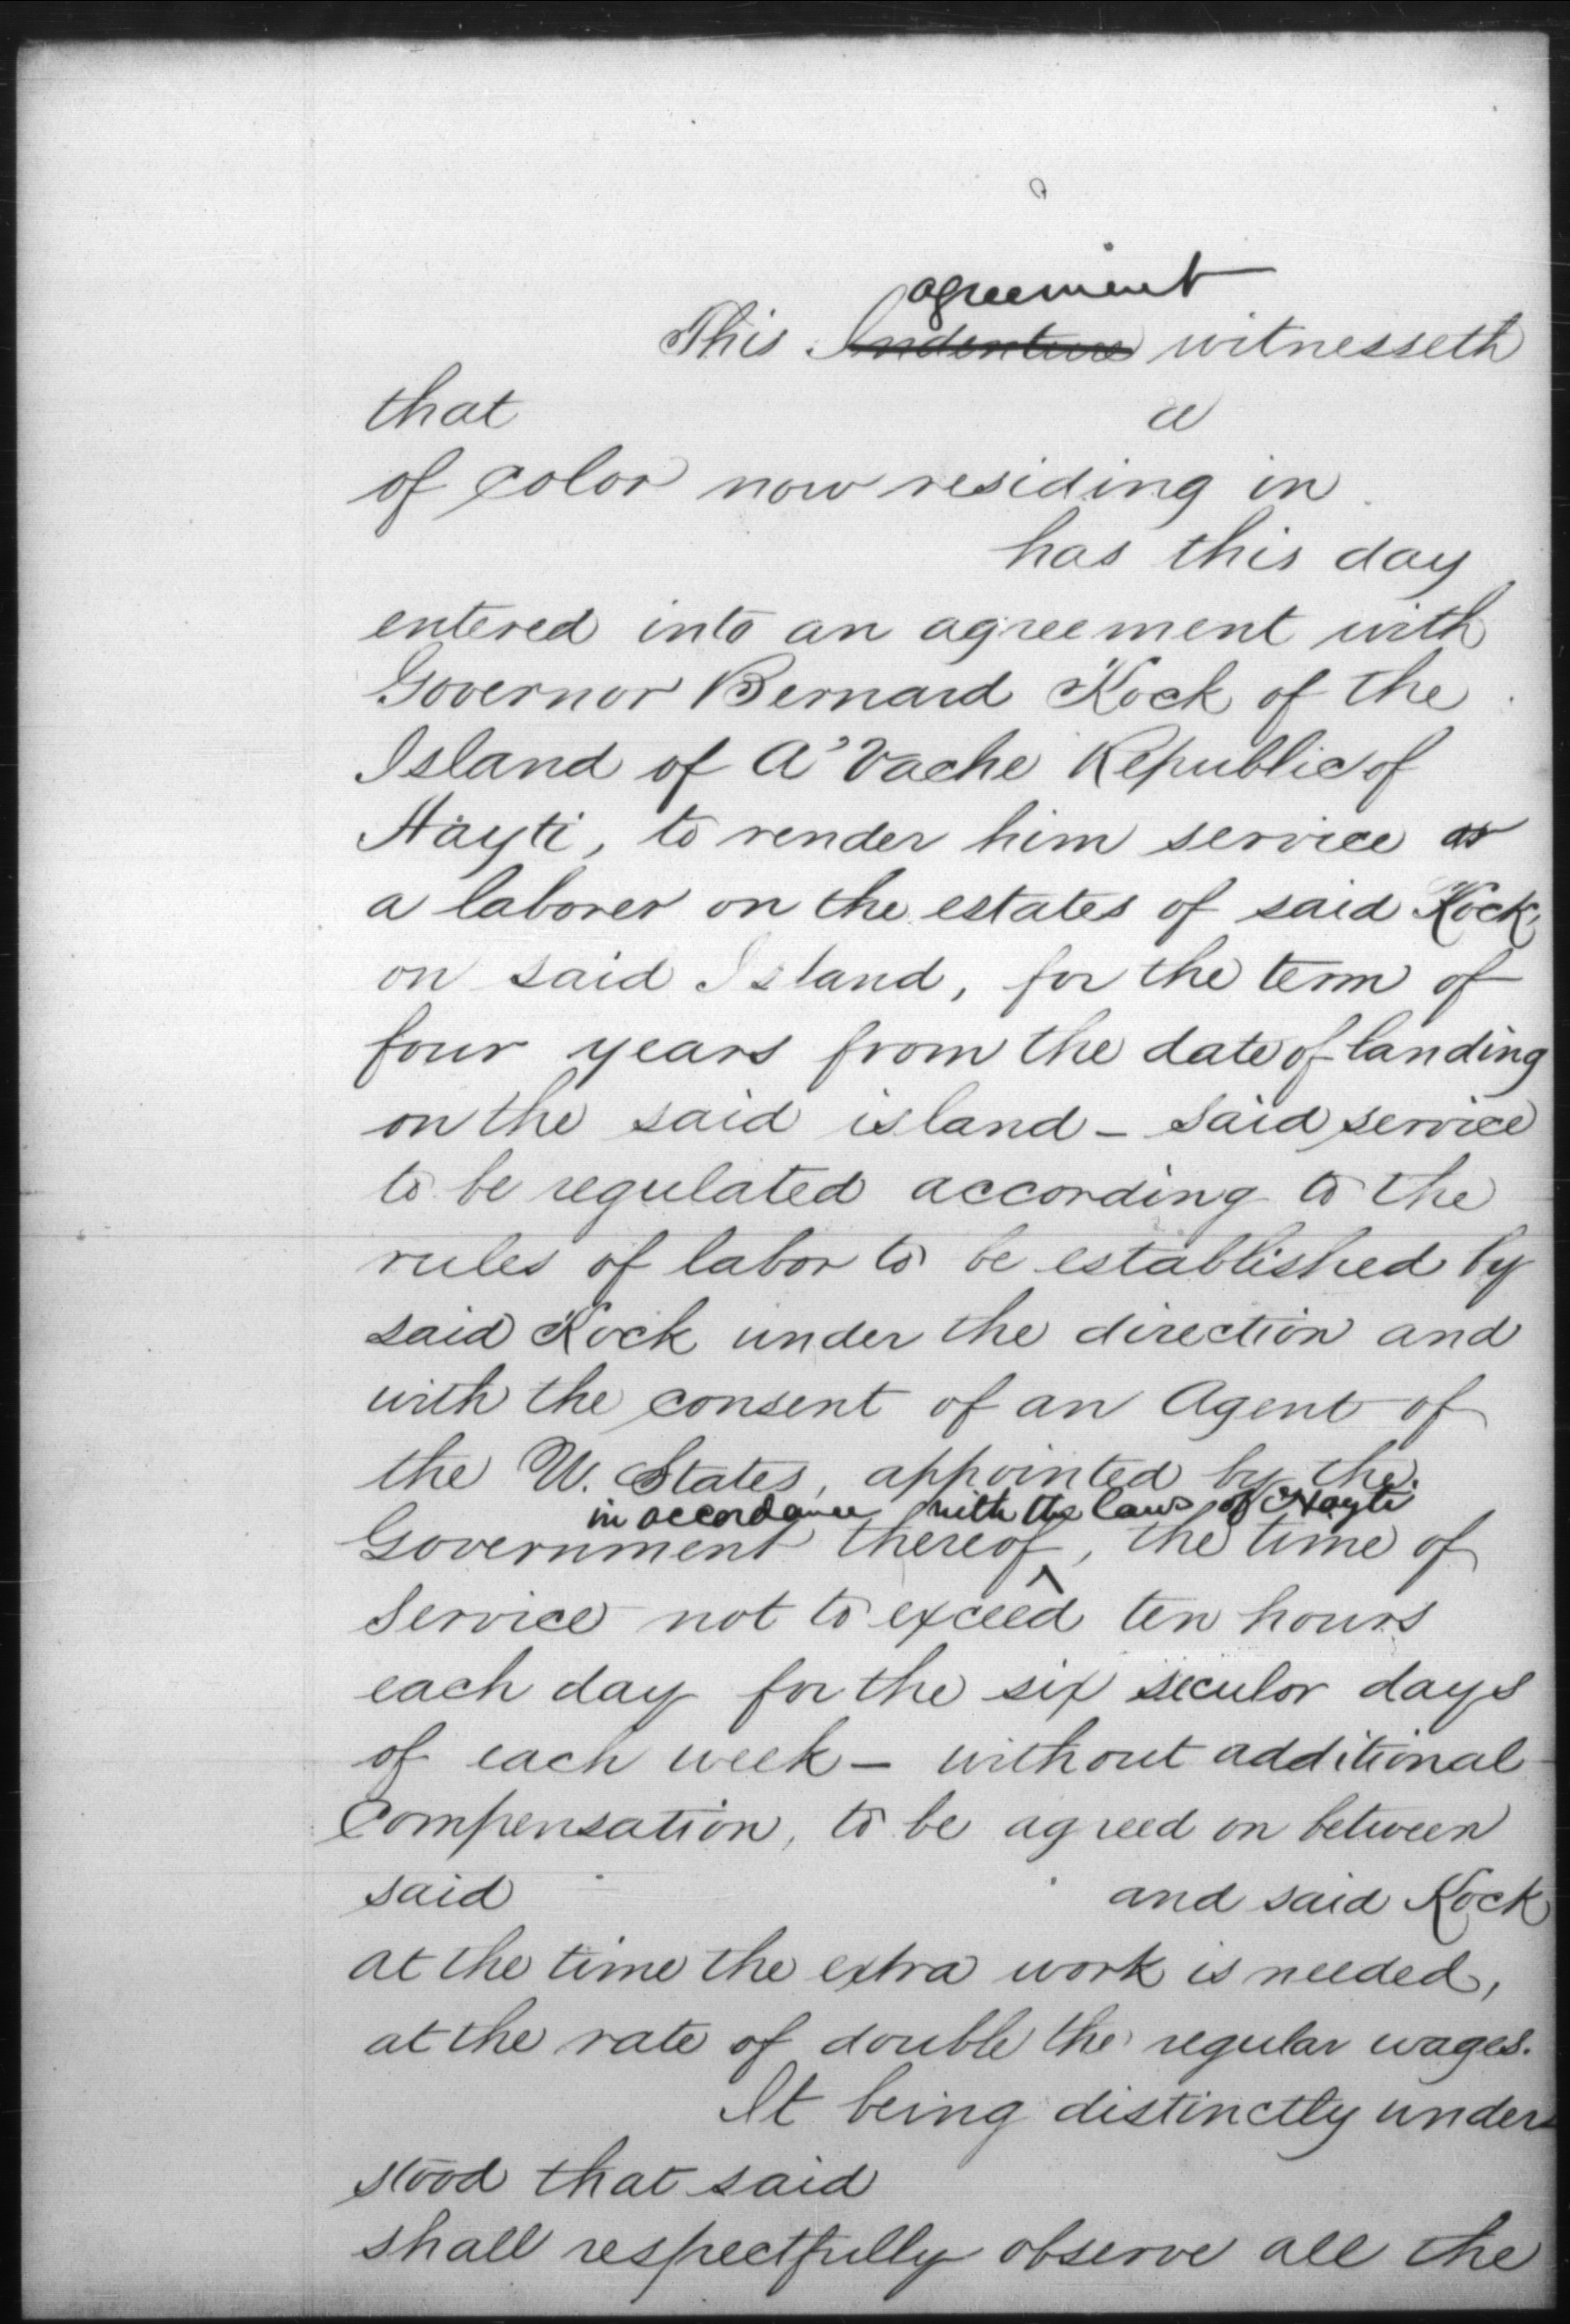 agreement
This Indenture witnesseth
that a
of color now residing in
has this day
entered into an agreement with
Governor Bernard Kock of the
Island of A'Vache Republic of
Hayti, to render him service as
a laborer on the estates of said Kock,
on said Island, for the term of
four years from the date of landing
on the said island - said service
to be regulated according to the
rules of labor to be established by
said Kock under the direction and
with the consent of an Agent of
the U. States, appointed by the
in accordance with the laws of Hayti
Government thereof, the time of
service not to exceed ten hours
each day for the six seculor days
of each week - without additional
compensation, to be agreed on between
said and said Kock
at the time the extra work is needed,
at the rate of double the regular wages.
It being distinctly under
stood that said
shall respectfully observe all the